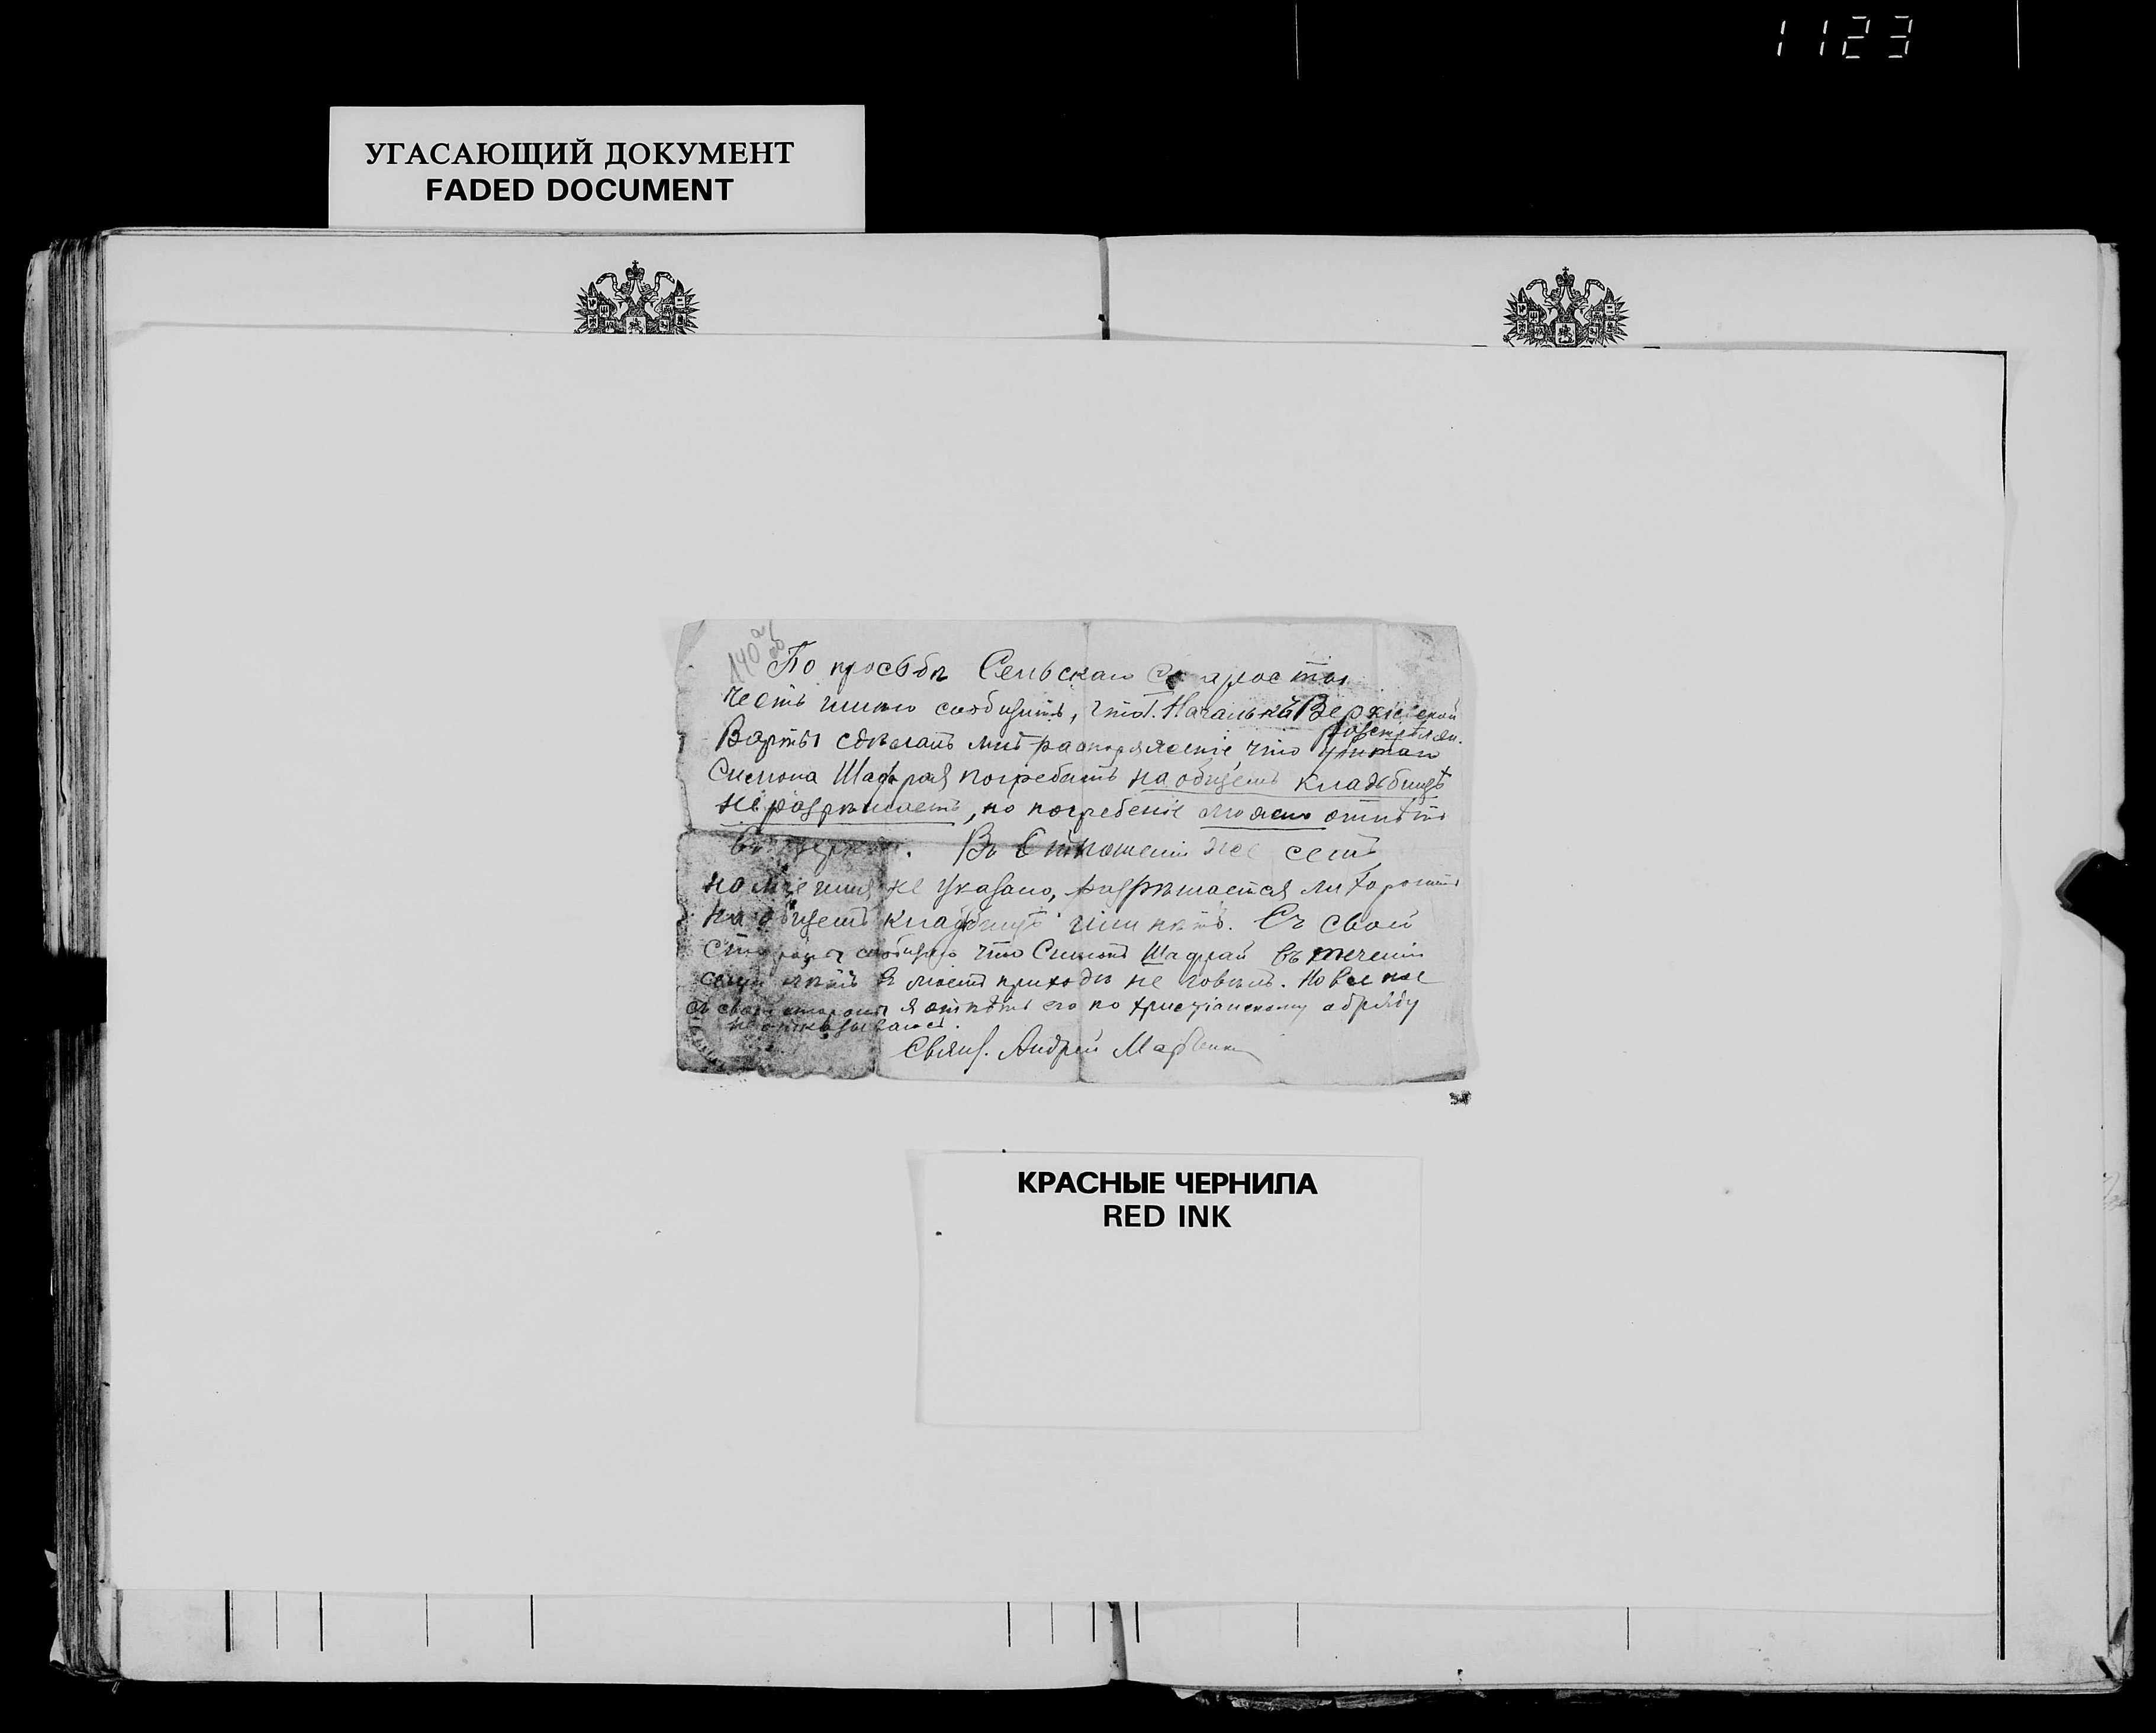 1123
УГАСАЮЩИЙ ДОКУМЕНТ
FADED DOCUMENT
140а об
По просьбѣ Сельскаго Старосты
честь имѣю сообщить, что Г. Начальн. Верхіевской
Варты сдѣлалъ мнѣ распоряженіе, что розстрѣлян.
Симона Шафрая погребать на общемъ кладбищѣ
не разрѣшаетъ, но погребеніе можно отпѣть
въ церкви. Въ Отношеніи же семъ
не указано, разрѣшается ли хоронить
на общемъ кладбищѣ или нѣтъ. Съ своей
стороны сообщаю что Симонъ Шафрай въ теченіи
семи лѣтъ въ моемъ приходѣ не говѣлъ. Но все же
съ своей стороны я отпѣть его по христіанскому обряду
не отказываюсь.
Свящ. Андрей
КРАСНЫЕ ЧЕРНИЛА
RED INK